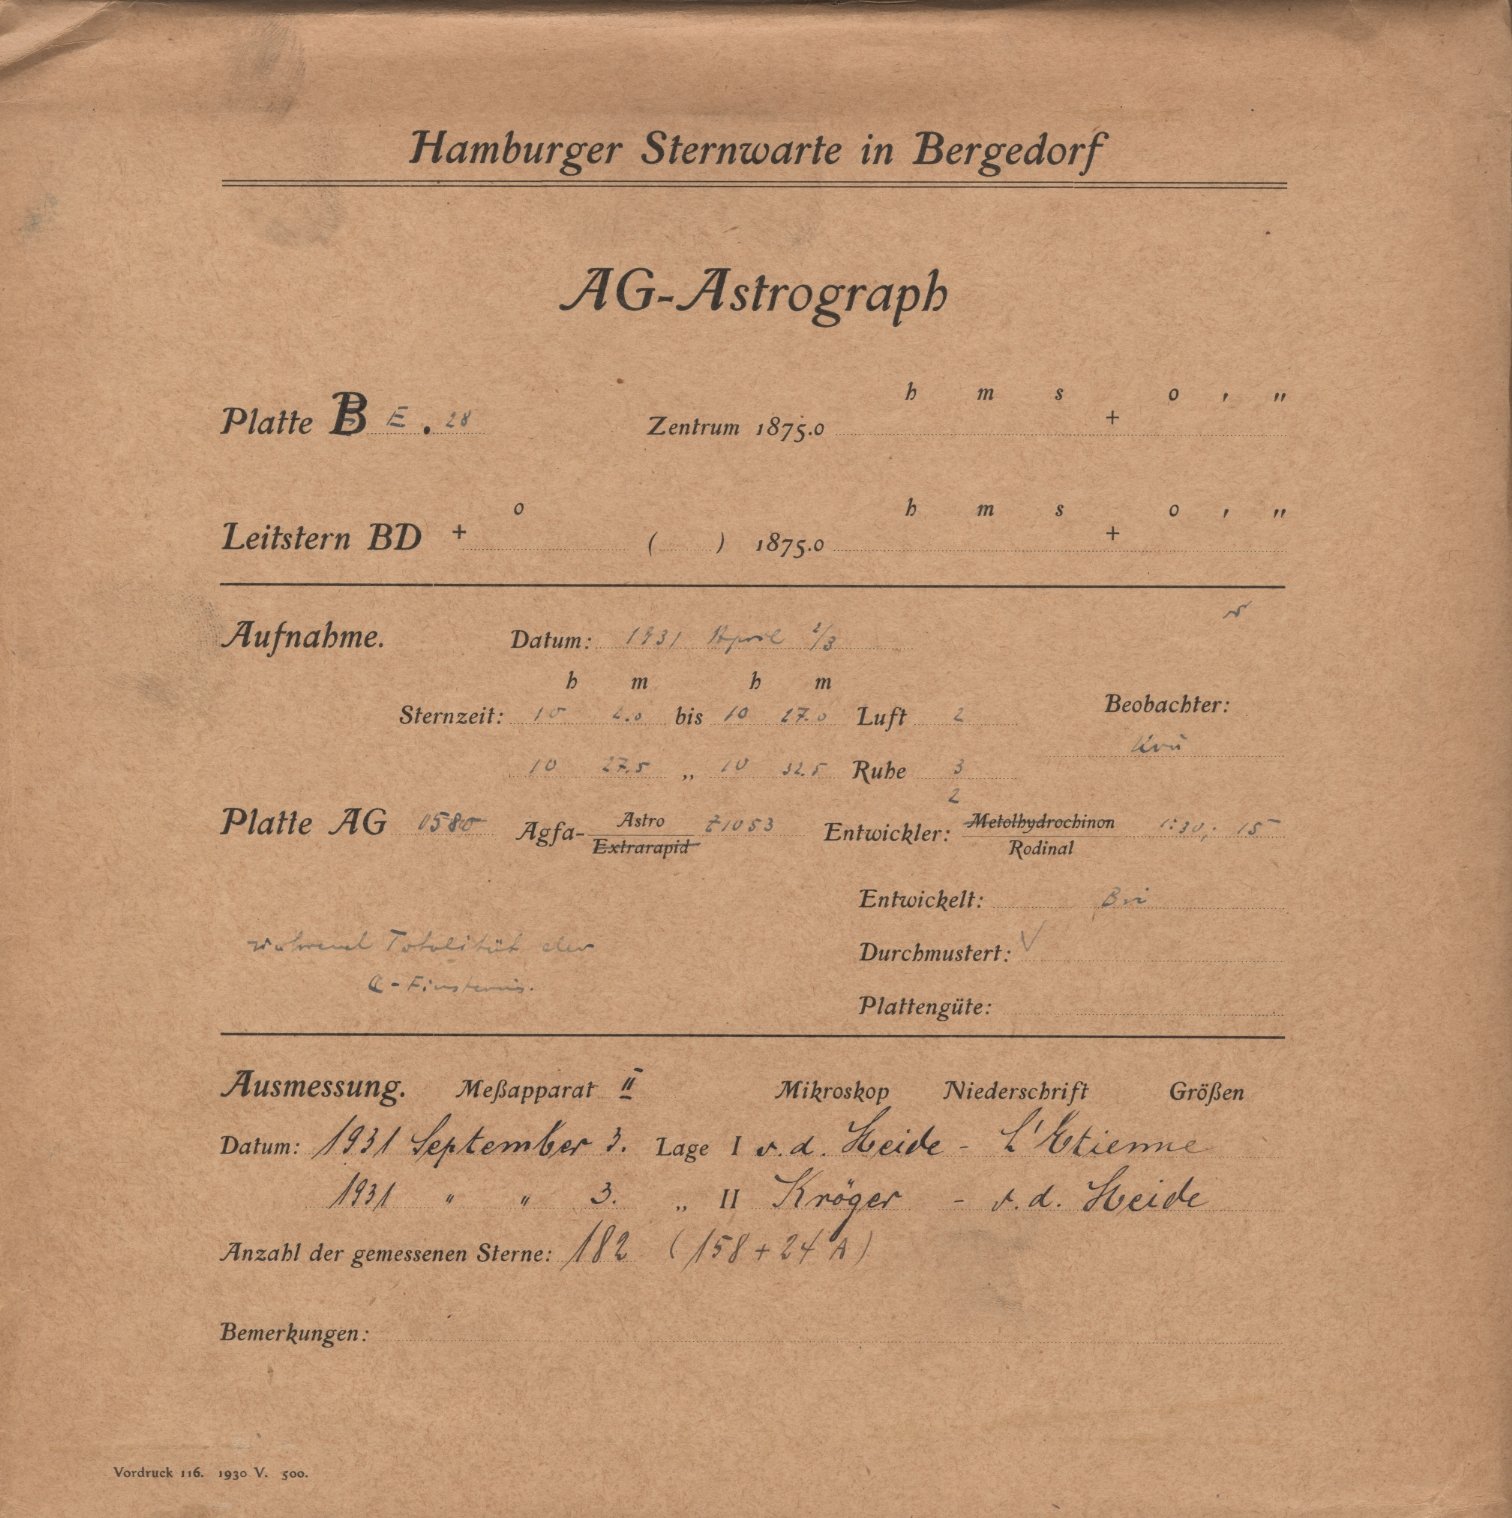 Hamburger Sternwarte in Bergedorf
AG-Astrograph
h m s o ′ ″
Platte B E . 28 Zentrum 1875.0 +
o h m s o ′ ″
Leitstern BD + ( ) 1875.0 +
Aufnahme. Datum: 1931 April 2/3
h m h m
Sternzeit: 10 2.0 bis 10 27.0 Luft 2 Beobachter:
10 27.5 „ 10 32.5 Ruhe 3 Krü
2
Platte AG 1580 Agfa- Astro Z1053 Entwickler: Metolhydrochinon 1:30, 15
Extrarapid Rodinal
Entwickelt:
während Totalität der Durchmustert: √
☾-Finsternis.
Plattengüte:
Ausmessung. Meßapparat II Mikroskop Niederschrift Größen
Datum: 1931 September 3. Lage I v. d. Heide - L'Etienne
1931 " " 3. „ II Kröger - v. d. Heide
Anzahl der gemessenen Sterne: 182 (158 + 24 A)
Bemerkungen:
Vordruck 116. 1930 V. 500.